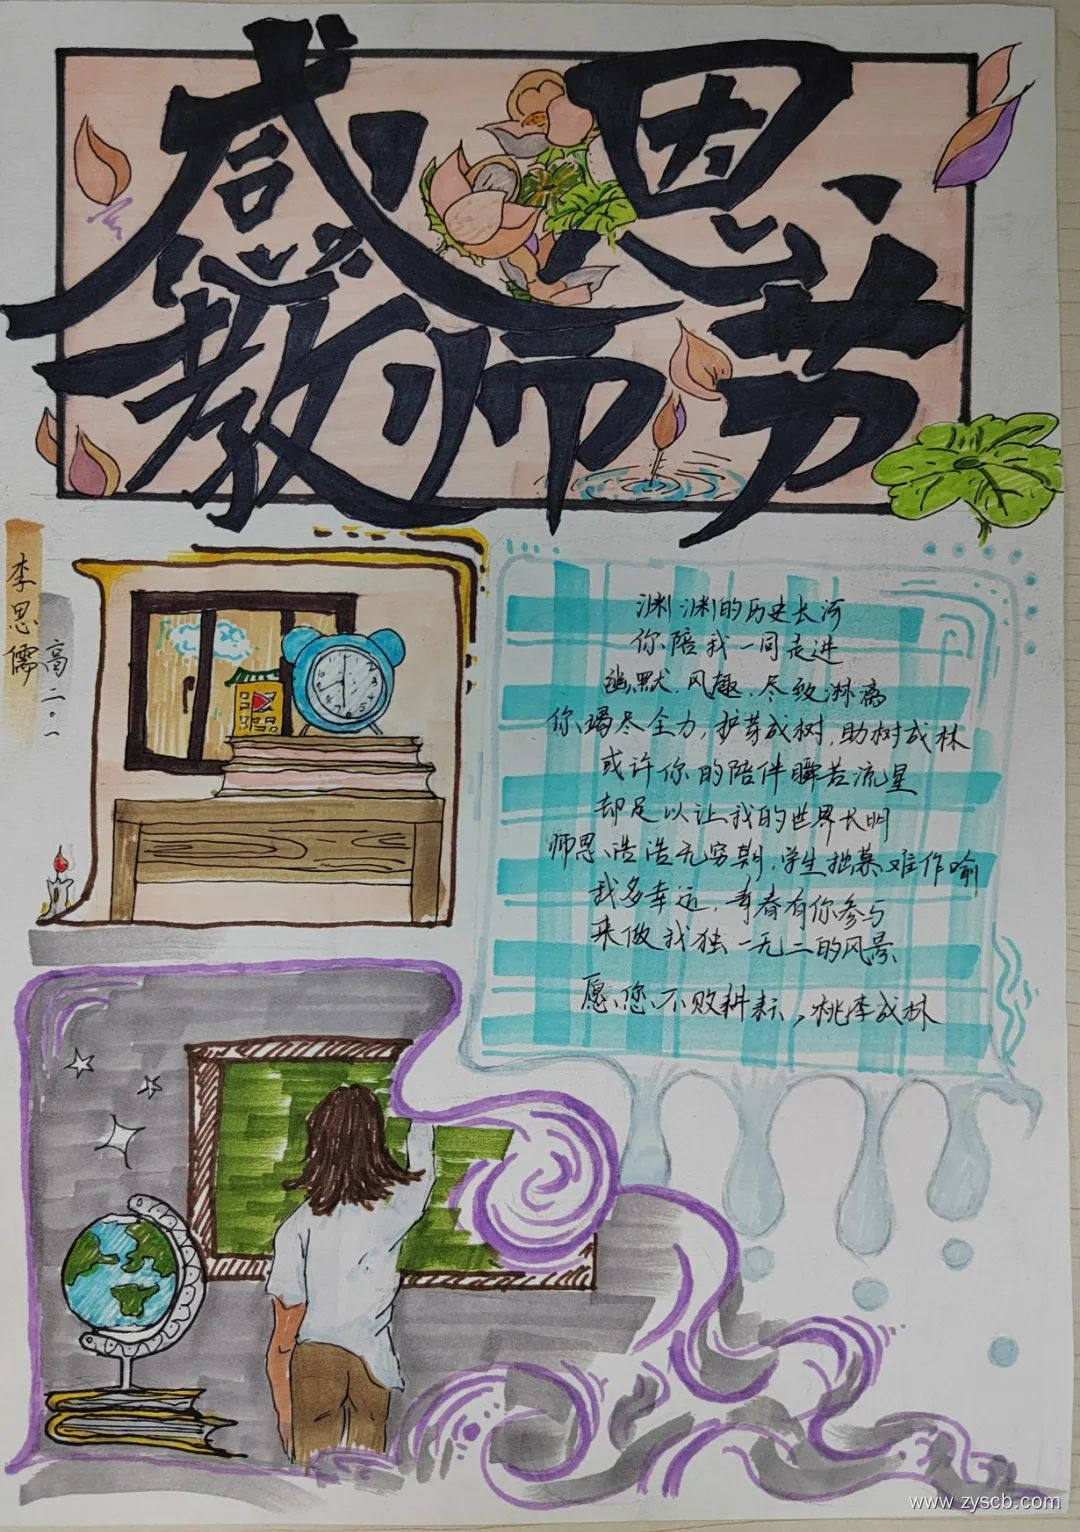 感恩
教师节
李思儒
高二.01
渊渊的历史长河
你陪我一同走进
幽默、风趣、尽致淋漓
你竭尽全力,护芽成树,助树成林
或许你的陪伴瞬若流星
却足以让我的世界长明
师恩浩浩无穷期,学生拙慕难作喻
我多幸运,青春有你参与
来做我独一无二的风景
愿您不败耕耘,桃李成林
www.zyscb.com